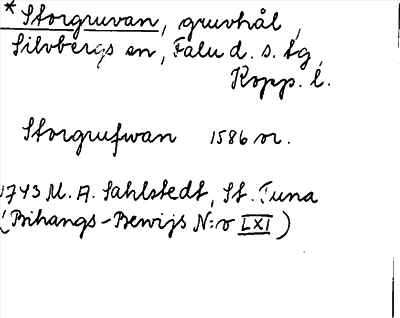 * Storgruvan, gruvhål,
Silvbergs sn, Falu d. s. tg,
Kopp. l.
Storgrufwan 1586 or.
1743 M. A. Sahlstedt, St. Tuna
(Bihangs-Bewijs N:o LXI)